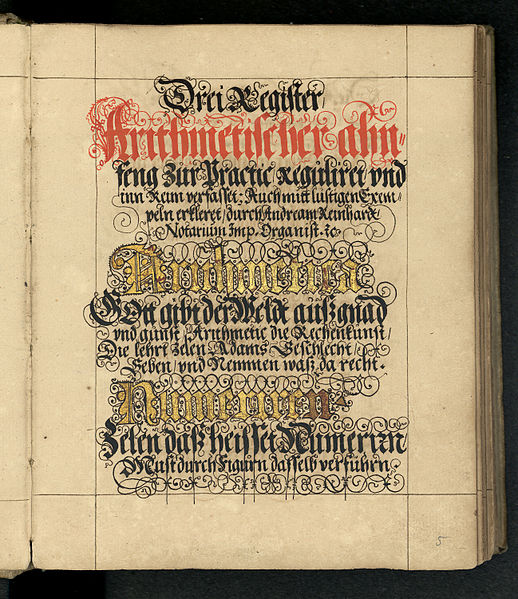 Drei Register
Arithmetischer ahn-
feng zur Practic reguliret vnd
inn Reim verfasset: Auch mitt lustigen Exem
peln erkleret / durch Andream Reinhard
Notarium Imp. Organist. ꝛc.
Arithmetica
GOtt gibt der Weldt auß gnad
vnd gunst / Arithmetic die Rechenkunst /
Die lehrt zelen Adams Geschlecht /
Geben / vnd Nemmen waß da recht.
Numerirn.
Zelen daß heisset Numerirn
Must durch Figurn dasselb verführn.
5